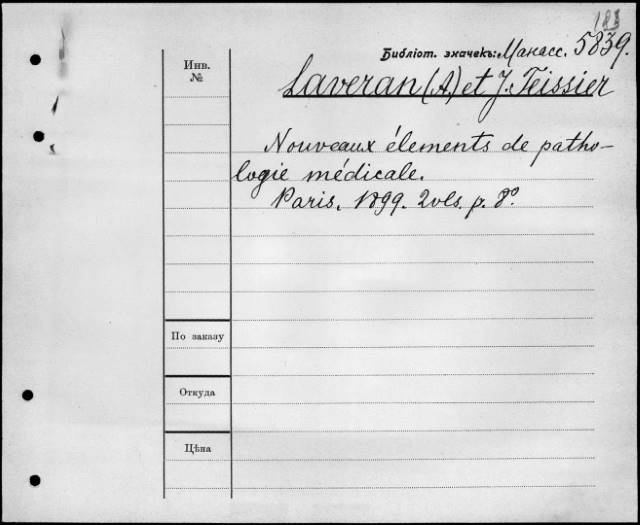 183
Библіот. значекъ: Манасс. 5839.
Инв.
№
Laveran (A) et J. Teissier
Nouveaux élements de patho-
logie médicale.
Paris. 1899. 2vls. p. 8°.
По заказу
Откуда
Цѣна